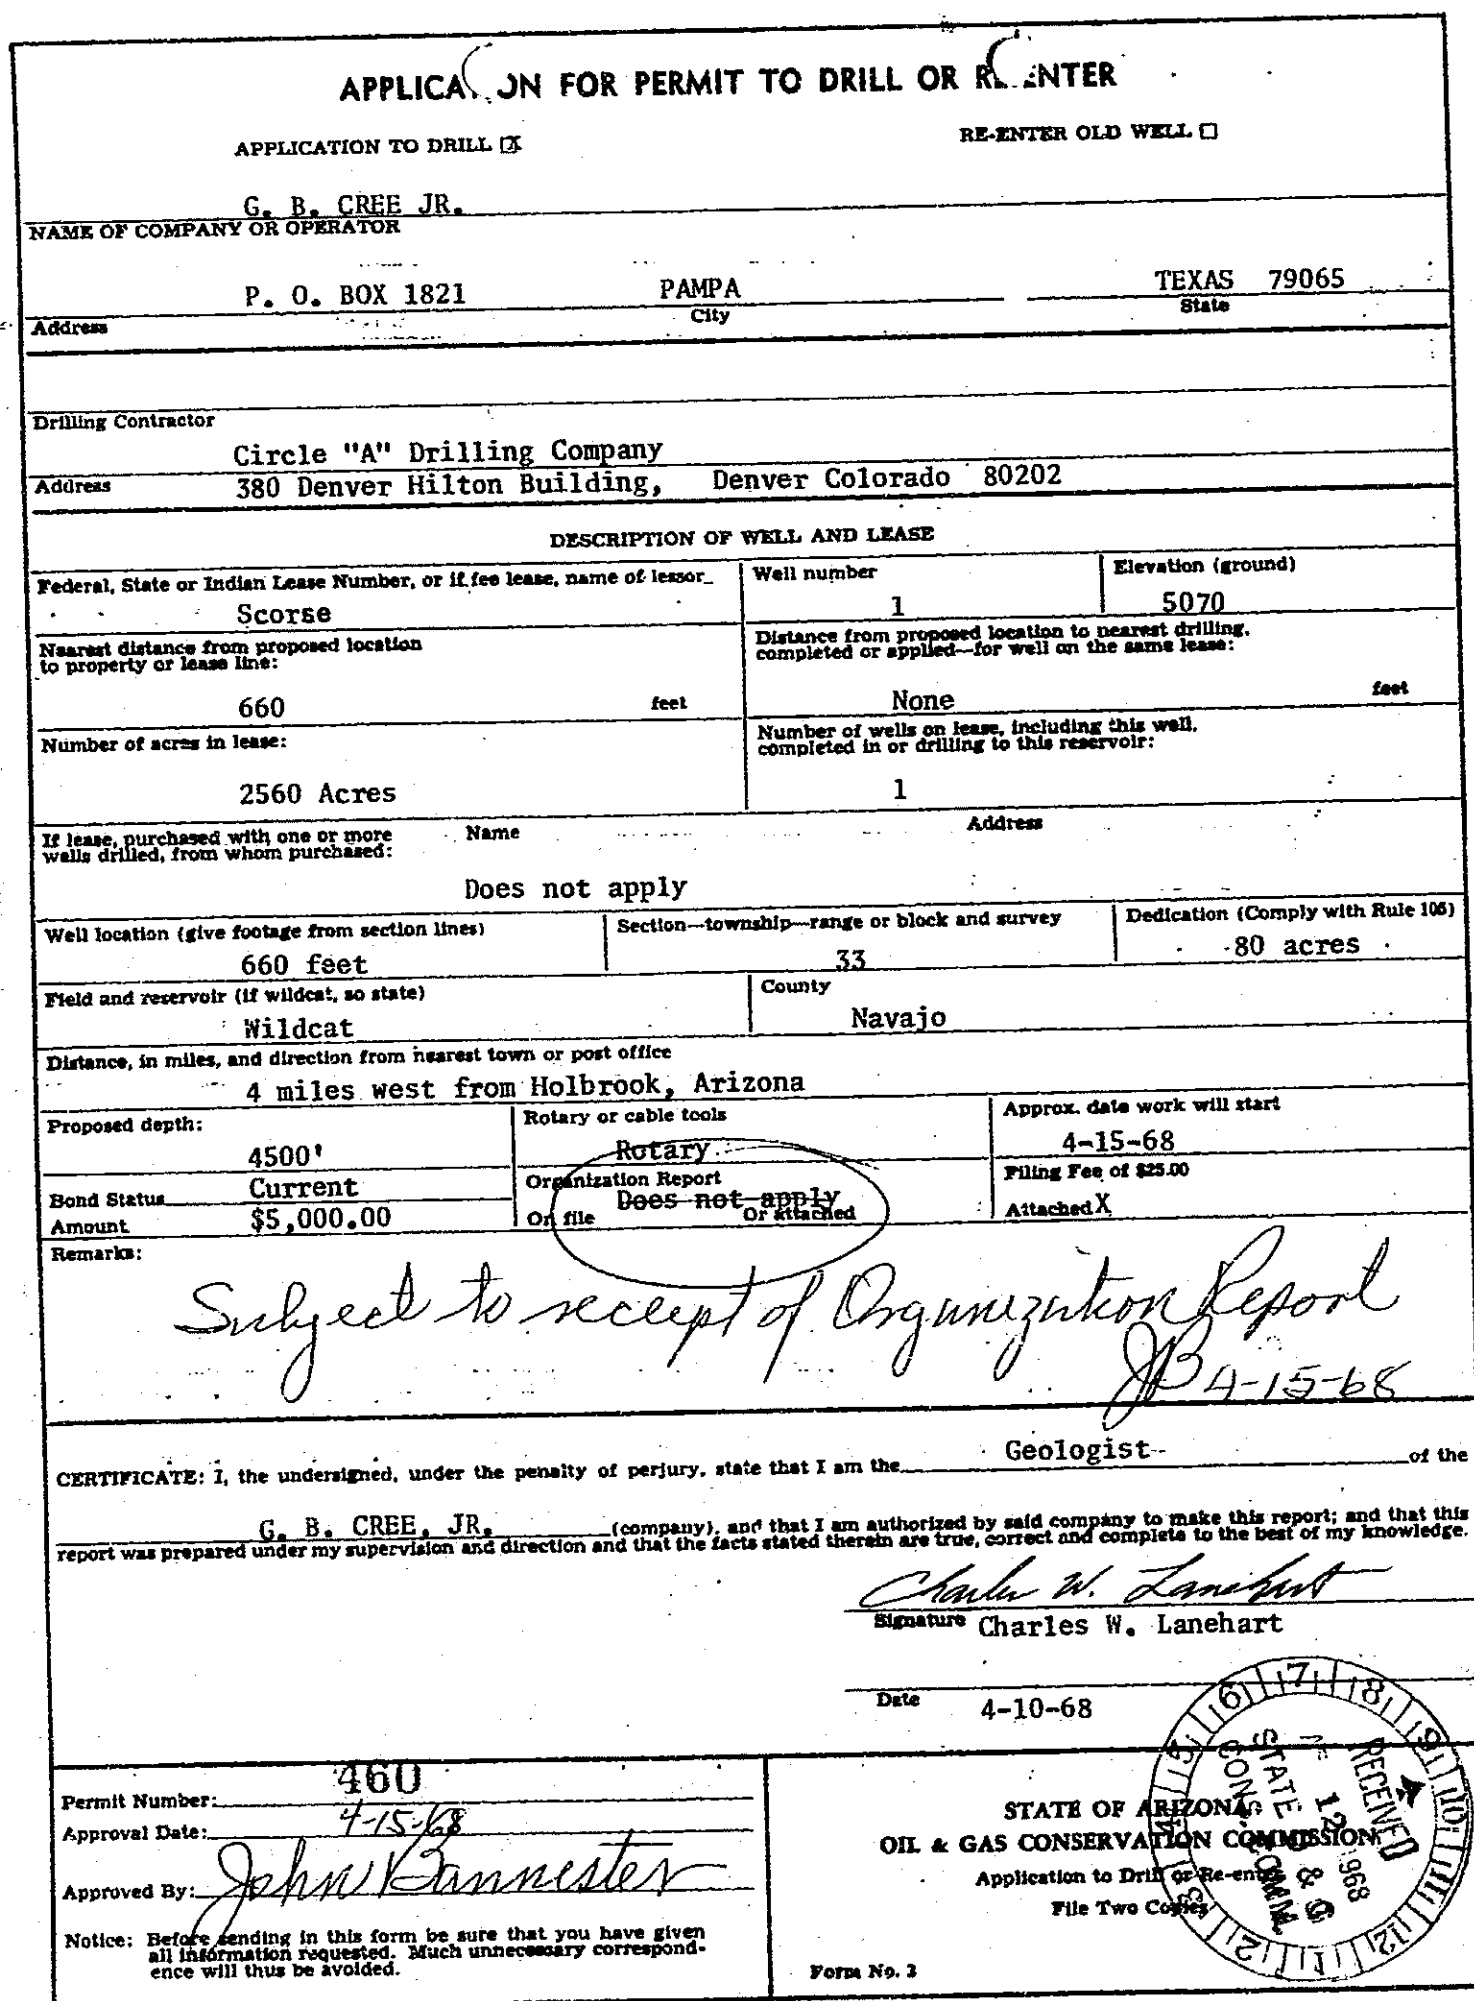 APPLICA ON FOR PERMIT TO DRILL OR RE ENTER
APPLICATION TO DRILL ☒ RE-ENTER OLD WELL ☐
G. B. CREE JR.
NAME OF COMPANY OR OPERATOR
P. O. BOX 1821 PAMPA TEXAS 79065
Address City State
Drilling Contractor
Circle "A" Drilling Company
Address 380 Denver Hilton Building, Denver Colorado 80202
DESCRIPTION OF WELL AND LEASE
Federal, State or Indian Lease Number, or if fee lease, name of lessor
Scorse
Well number
1
Elevation (ground)
5070
Nearest distance from proposed location
to property or lease line:
660 feet
Distance from proposed location to nearest drilling,
completed or applied—for well on the same lease:
None feet
Number of acres in lease:
2560 Acres
Number of wells on lease, including this well,
completed in or drilling to this reservoir:
1
If lease, purchased with one or more
wells drilled, from whom purchased:
Name Address
Does not apply
Well location (give footage from section lines)
660 feet
Section—township—range or block and survey
33
Dedication (Comply with Rule 105)
80 acres
Field and reservoir (if wildcat, so state)
Wildcat
County
Navajo
Distance, in miles, and direction from nearest town or post office
4 miles west from Holbrook, Arizona
Proposed depth:
4500'
Rotary or cable tools
Rotary
Approx. date work will start
4-15-68
Bond Status Current
Amount $5,000.00
Organization Report
Does not apply
On file Or attached
Filing Fee of $25.00
Attached X
Remarks:
Subject to receipt of Organization Report
JB 4-15-68
CERTIFICATE: I, the undersigned, under the penalty of perjury, state that I am the Geologist of the
G. B. CREE, JR. (company), and that I am authorized by said company to make this report; and that this
report was prepared under my supervision and direction and that the facts stated therein are true, correct and complete to the best of my knowledge.
Charles W. Lanehart
Signature Charles W. Lanehart
Date 4-10-68
Permit Number: 460
Approval Date: 4-15-68
Approved By: John Bannister
Notice: Before sending in this form be sure that you have given
all information requested. Much unnecessary correspond-
ence will thus be avoided.
STATE OF ARIZONA
OIL & GAS CONSERVATION COMMISSION
Application to Drill or Re-enter
File Two Copies
Form No. 3
RECEIVED
12 1968
STATE O & G
CONS. COMM.
1 2 3 4 5 6 7 8 9 10 11 12